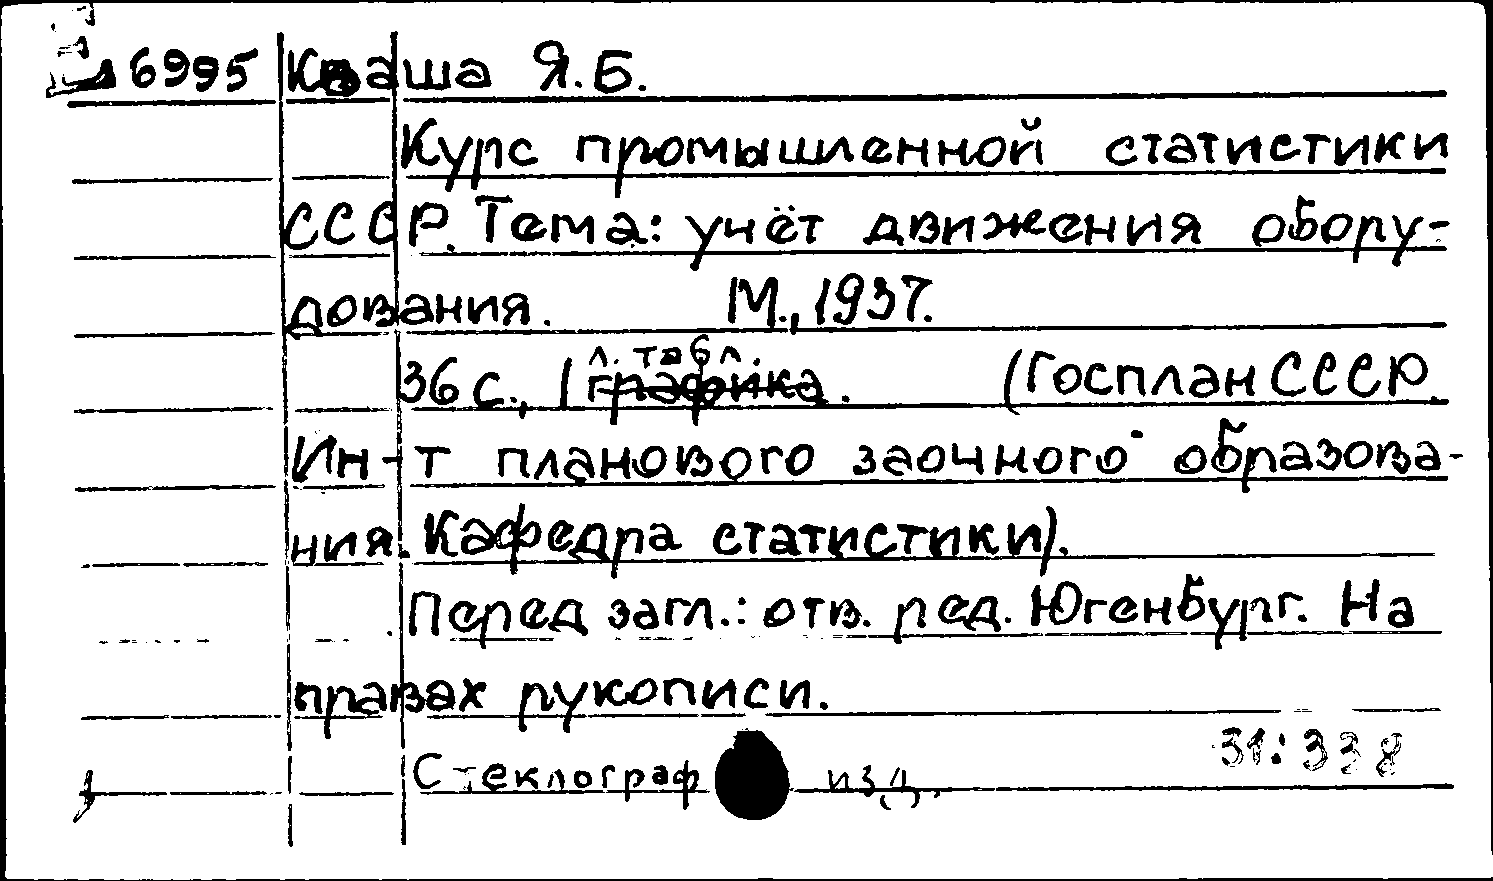 6995 Кваша Я.Б.
Курс промышленной статистики
СССР. Тема: учёт движения обору-
дования. М., 1937.
л. табл.
36 с., 1 графика. (Госплан СССР.
Ин-т планового заочного образова-
ния. Кафедра статистики).
Перед загл.: отв. ред. Югенбург. На
правах рукописи.
31:338
Стеклограф изд.